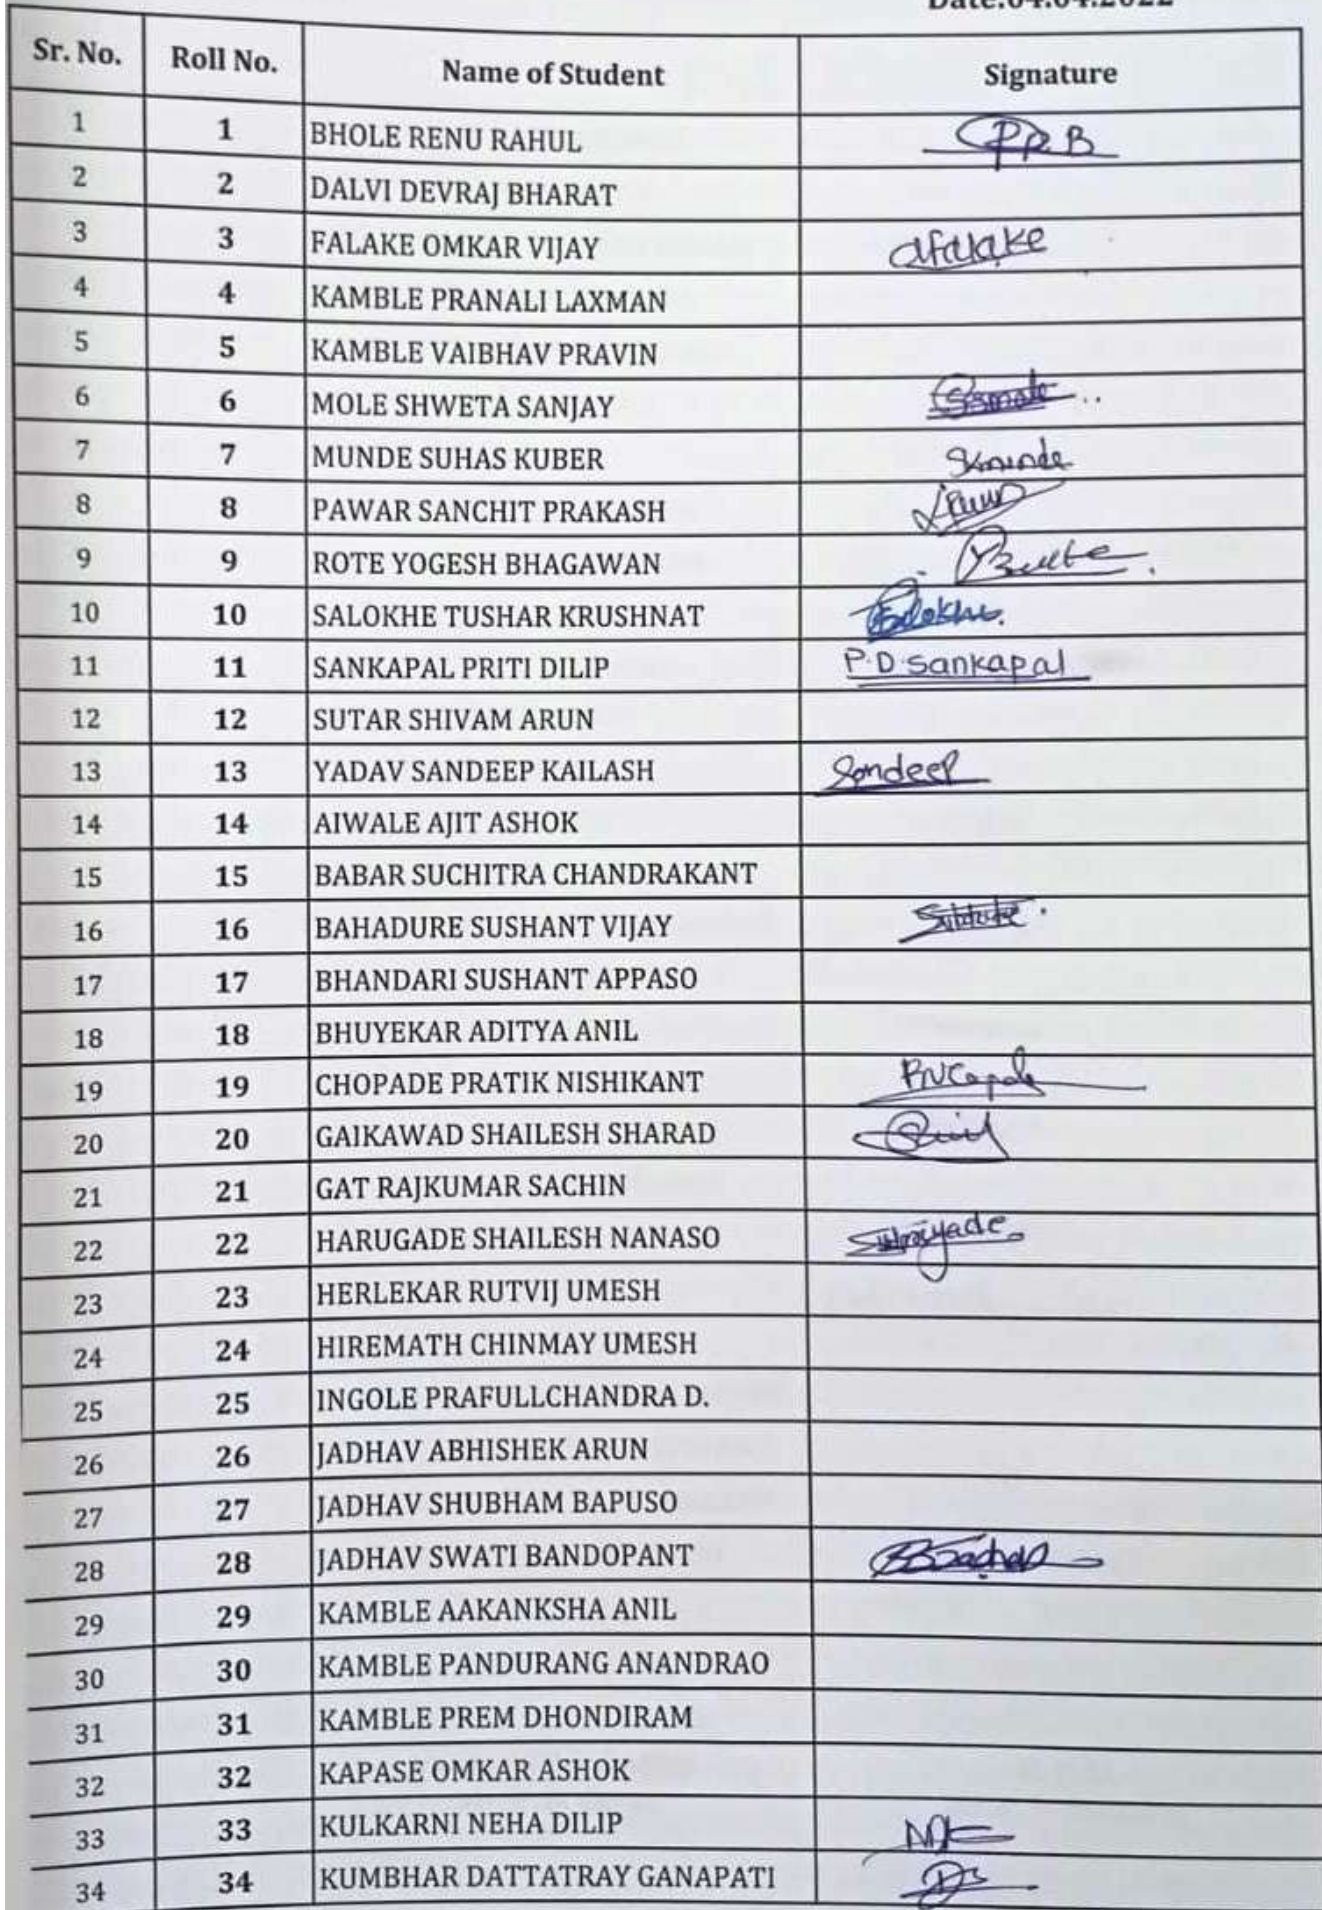 Date:04.04.2022
Sr. No. Roll No. Name of Student Signature
1 1 BHOLE RENU RAHUL RRB
2 2 DALVI DEVRAJ BHARAT
3 3 FALAKE OMKAR VIJAY
4 4 KAMBLE PRANALI LAXMAN
5 5 KAMBLE VAIBHAV PRAVIN
6 6 MOLE SHWETA SANJAY
7 7 MUNDE SUHAS KUBER Skmunde
8 8 PAWAR SANCHIT PRAKASH
9 9 ROTE YOGESH BHAGAWAN
10 10 SALOKHE TUSHAR KRUSHNAT
11 11 SANKAPAL PRITI DILIP P.D.Sankapal
12 12 SUTAR SHIVAM ARUN
13 13 YADAV SANDEEP KAILASH Sandeep
14 14 AIWALE AJIT ASHOK
15 15 BABAR SUCHITRA CHANDRAKANT
16 16 BAHADURE SUSHANT VIJAY
17 17 BHANDARI SUSHANT APPASO
18 18 BHUYEKAR ADITYA ANIL
19 19 CHOPADE PRATIK NISHIKANT
20 20 GAIKAWAD SHAILESH SHARAD
21 21 GAT RAJKUMAR SACHIN
22 22 HARUGADE SHAILESH NANASO
23 23 HERLEKAR RUTVIJ UMESH
24 24 HIREMATH CHINMAY UMESH
25 25 INGOLE PRAFULLCHANDRA D.
26 26 JADHAV ABHISHEK ARUN
27 27 JADHAV SHUBHAM BAPUSO
28 28 JADHAV SWATI BANDOPANT
29 29 KAMBLE AAKANKSHA ANIL
30 30 KAMBLE PANDURANG ANANDRAO
31 31 KAMBLE PREM DHONDIRAM
32 32 KAPASE OMKAR ASHOK
33 33 KULKARNI NEHA DILIP
34 34 KUMBHAR DATTATRAY GANAPATI